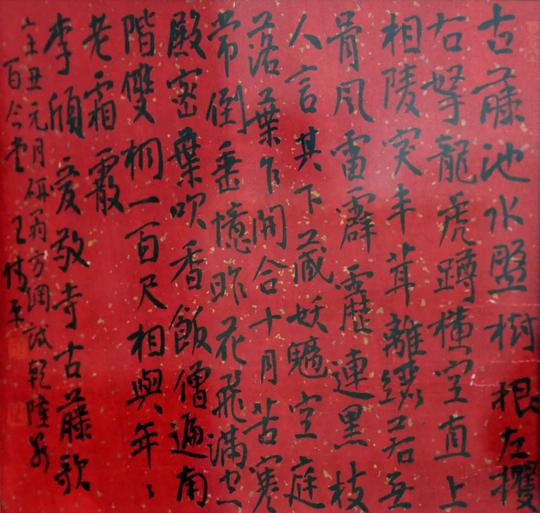 古藤池水盤樹根左攫
右拏龍虎蹲橫空直上
相陵突丰茸離纚若無
骨風雷霹靂連黑枝
人言其下藏妖魑空庭
落葉乍開合十月苦寒
常倒垂憶昨花飛滿空
殿密葉吹香飯僧遍南
階雙桐一百尺相與年〻
老霜霰
李頎愛敬寺古藤歌
辛丑元月研翁方綱試乾隆
百